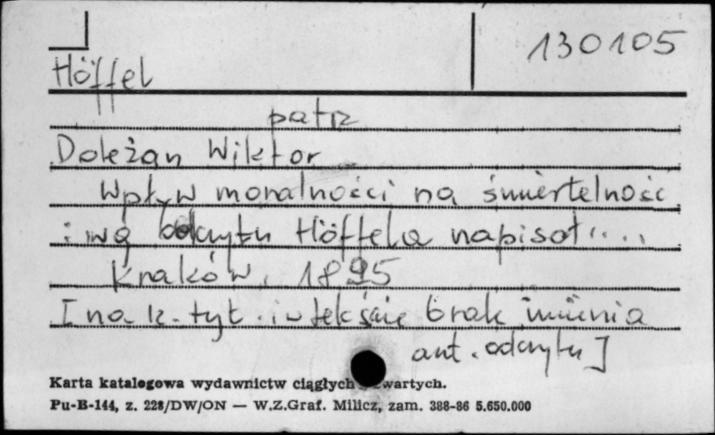 130105
Höffel
patrz
Doleżan Wiktor
Wpływ moralności na śmiertelność
: wg odczytu Höffela napisał....
Kraków, 1895
[na k. tyt. i w tekście brak imienia
aut. odczytu]
Karta katalogowa wydawnictw ciągłych zwartych.
Pu-B-144, z. 228/DW/ON — W.Z.Graf. Milicz, zam. 388-86 5.650.000